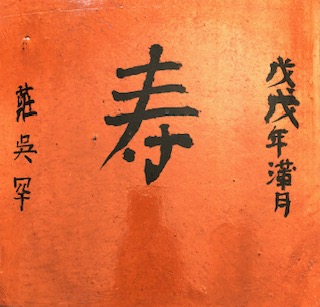 戊戌年満月
寿
莊吳罕